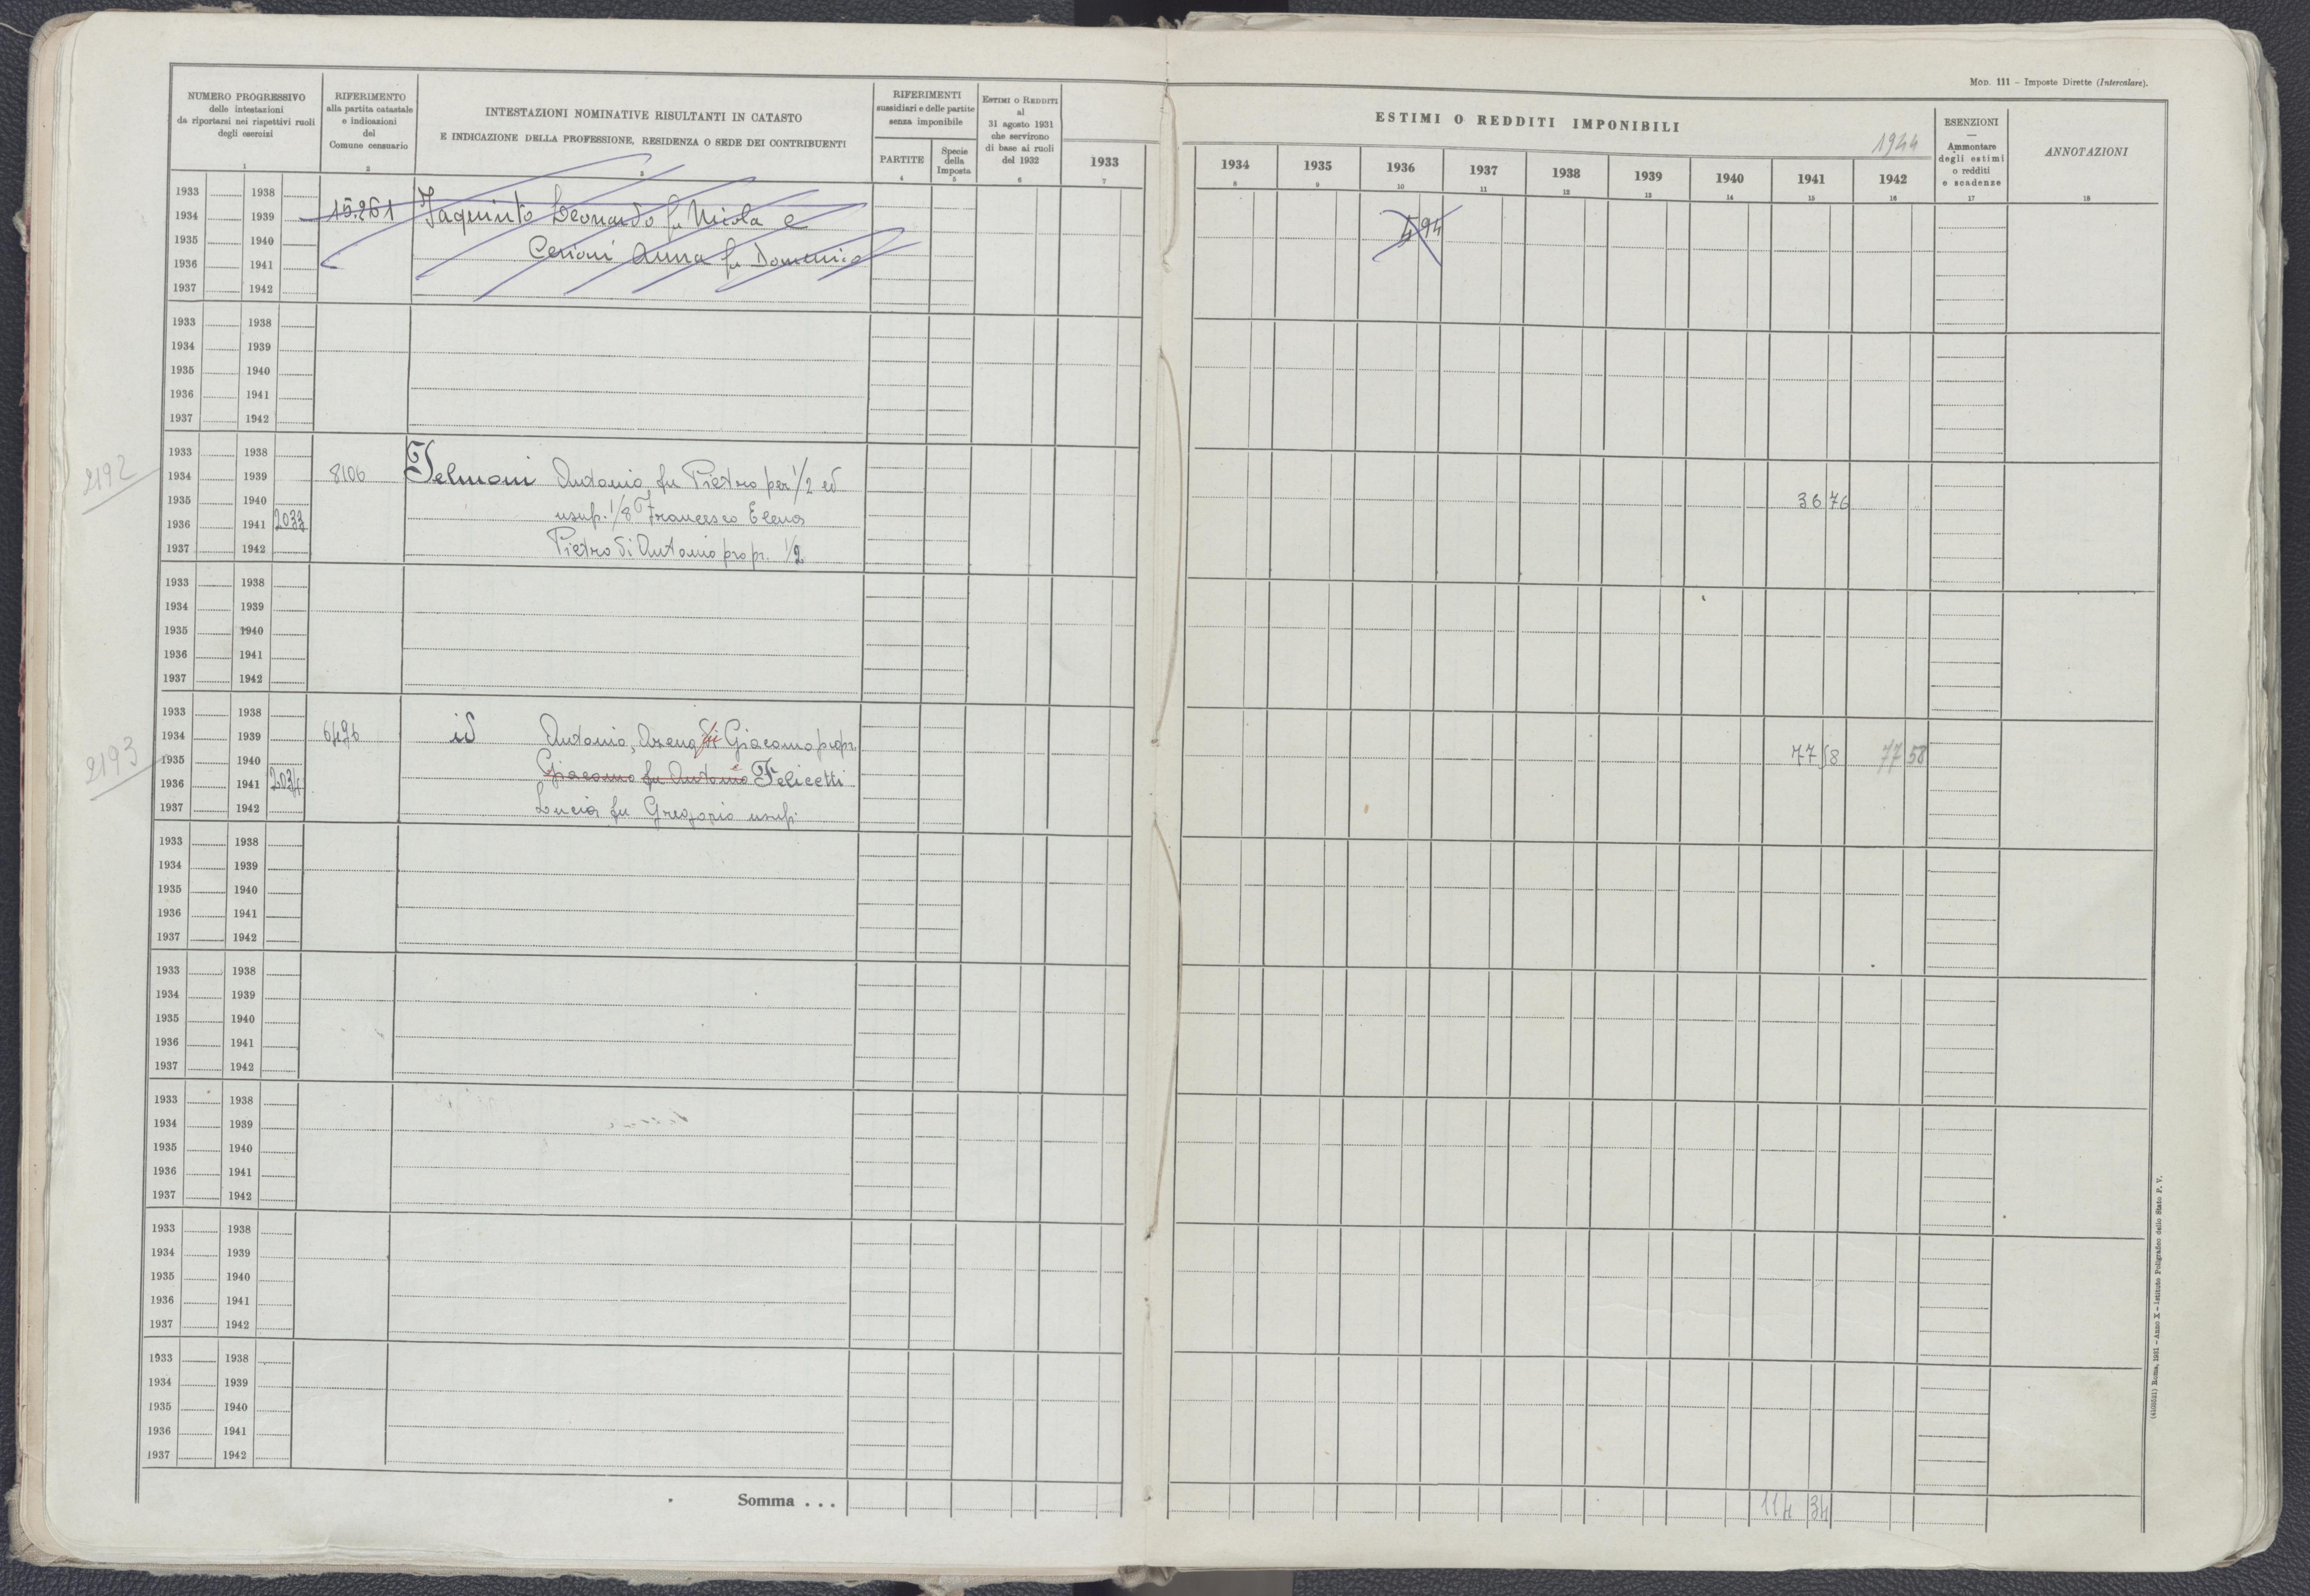 Mod. 111 – Imposte Dirette (Intercalare).
NUMERO PROGRESSIVO
delle intestazioni
da riportarsi nei rispettivi ruoli
degli esercizi
1
RIFERIMENTO
alla partita catastale
e indicazioni
del
Comune censuario
2
INTESTAZIONI NOMINATIVE RISULTANTI IN CATASTO
E INDICAZIONE DELLA PROFESSIONE, RESIDENZA O SEDE DEI CONTRIBUENTI
3
RIFERIMENTI
sussidiari e delle partite
senza imponibile
PARTITE
4
Specie
della
Imposta
5
Estimi o Redditi
al
31 agosto 1931
che servirono
di base ai ruoli
del 1932
6
1933
7
ESTIMI O REDDITI IMPONIBILI
1944
1934 1935 1936 1937 1938 1939 1940 1941 1942
8 9 10 11 12 13 14 15 16
ESENZIONI
—
Ammontare
degli estimi
o redditi
e scadenze
17
ANNOTAZIONI
18
1933 1938
1934 1939 15.261 Iaquinto Leonardo fu Nicola e 4 94
1935 1940 Cerioni Anna fu Domenico
1936 1941
1937 1942
1933 1938
1934 1939
1935 1940
1936 1941
1937 1942
2192
1933 1938
1934 1939 8106 Ielmoni Antonio fu Pietro per 1/2 ed
1935 1940 usuf. 1/8 Francesco Elena 36 76
1936 1941 2033
1937 1942 Pietro di Antonio propr. 1/2
1933 1938
1934 1939
1935 1940
1936 1941
1937 1942
2193
1933 1938
1934 1939 6496 id Antonio, fu Giacomo propr.
1935 1940 Giacomo fu Antonio e Felicetti 77 58 77 58
1936 1941 2034
1937 1942 Lucia fu Gregorio usuf.
1933 1938
1934 1939
1935 1940
1936 1941
1937 1942
1933 1938
1934 1939
1935 1940
1936 1941
1937 1942
1933 1938
1934 1939
1935 1940
1936 1941
1937 1942
1933 1938
1934 1939
1935 1940
1936 1941
1937 1942
1933 1938
1934 1939
1935 1940
1936 1941
1937 1942
Somma . . . 114 34
(4103521) Roma, 1931 – Anno X – Istituto Poligrafico dello Stato P. V.